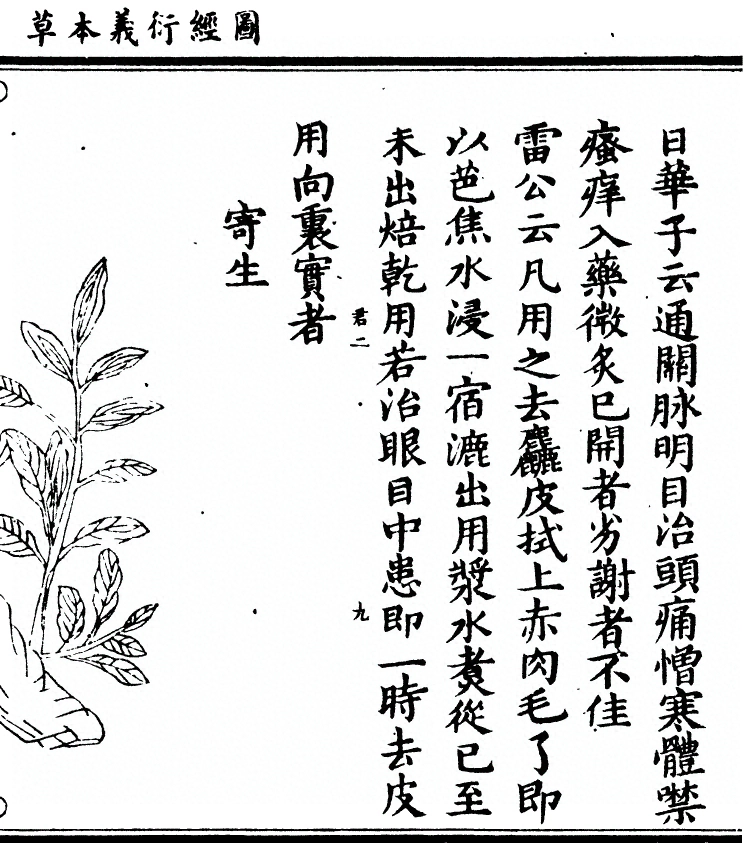 圖經衍義本草
日華子云通關脉明目治頭痛憎寒體噤
瘙痒入藥微炙已開者劣謝者不佳
雷公云凡用之去麤皮拭上赤肉毛了即
以芭焦水浸一宿漉出用漿水煑從巳至
未出焙乾用若治眼目中患即一時去皮
用向裏實者
君二
九
寄生